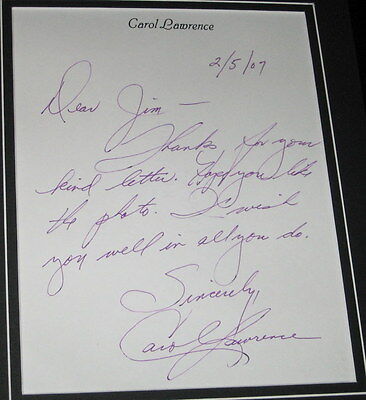 Carol Lawrence
2/5/07
Dear Jim —
Thanks, for your
kind letter. Hope you like
the photo. I wish
you well in all you do.
Sincerely,
Carol Lawrence